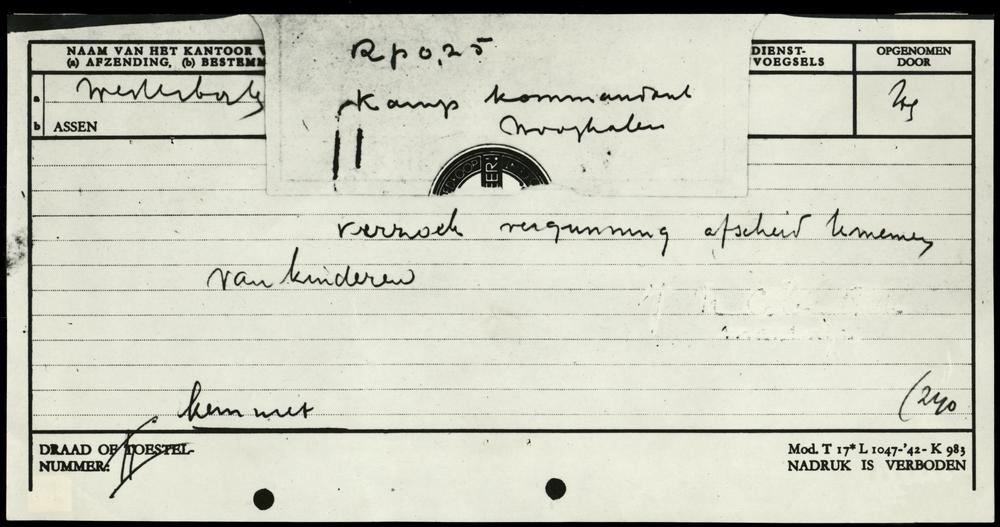 Rp 0,25
NAAM VAN HET KANTOOR V
(a) AFZENDING, (b) BESTEMM
DIENST-
VOEGSELS
OPGENOMEN
DOOR
a Westerbork
b ASSEN
Kamp kommandant
Hooghalen
verzoek vergunning afscheid tenemen
van kinderen
kan niet
(240
DRAAD OF TOESTEL-
NUMMER:
Mod. T 17* L 1047-'42- K 983
NADRUK IS VERBODEN